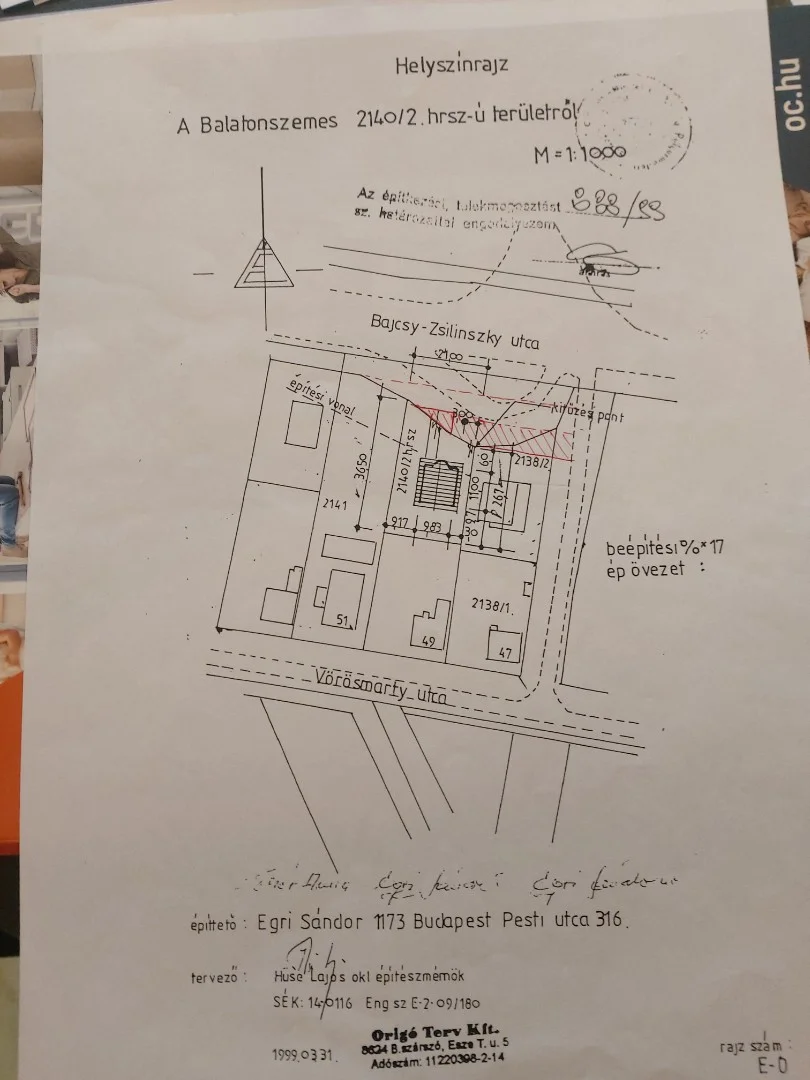 oc.hu
Helyszínrajz
A Balatonszemes 2140/2.hrsz-ú területről
M=1:1000
Az építkezési, telekmegosztást 388/99
sz. határozattal engedélyezem
Bajcsy-Zsilinszky utca
2100
építési vonal
300
kitűzési pont
3650
2140/2hrsz
60
2138/2
1100
P 267
2141
917
983
971
30
beépítési%*17
ép övezet :
2138/1.
51.
49
47
Vörösmarty utca
építtető : Egri Sándor 1173 Budapest Pesti utca 316.
tervező : Hüse Lajos okl építészmérnök
SÉK: 14-0116 Eng sz E-2-09/180
1999.03.31.
Origó Terv Kft.
8624 B.szárszó, Esze T. u. 5
Adószám: 11220398-2-14
rajz szám :
E-0